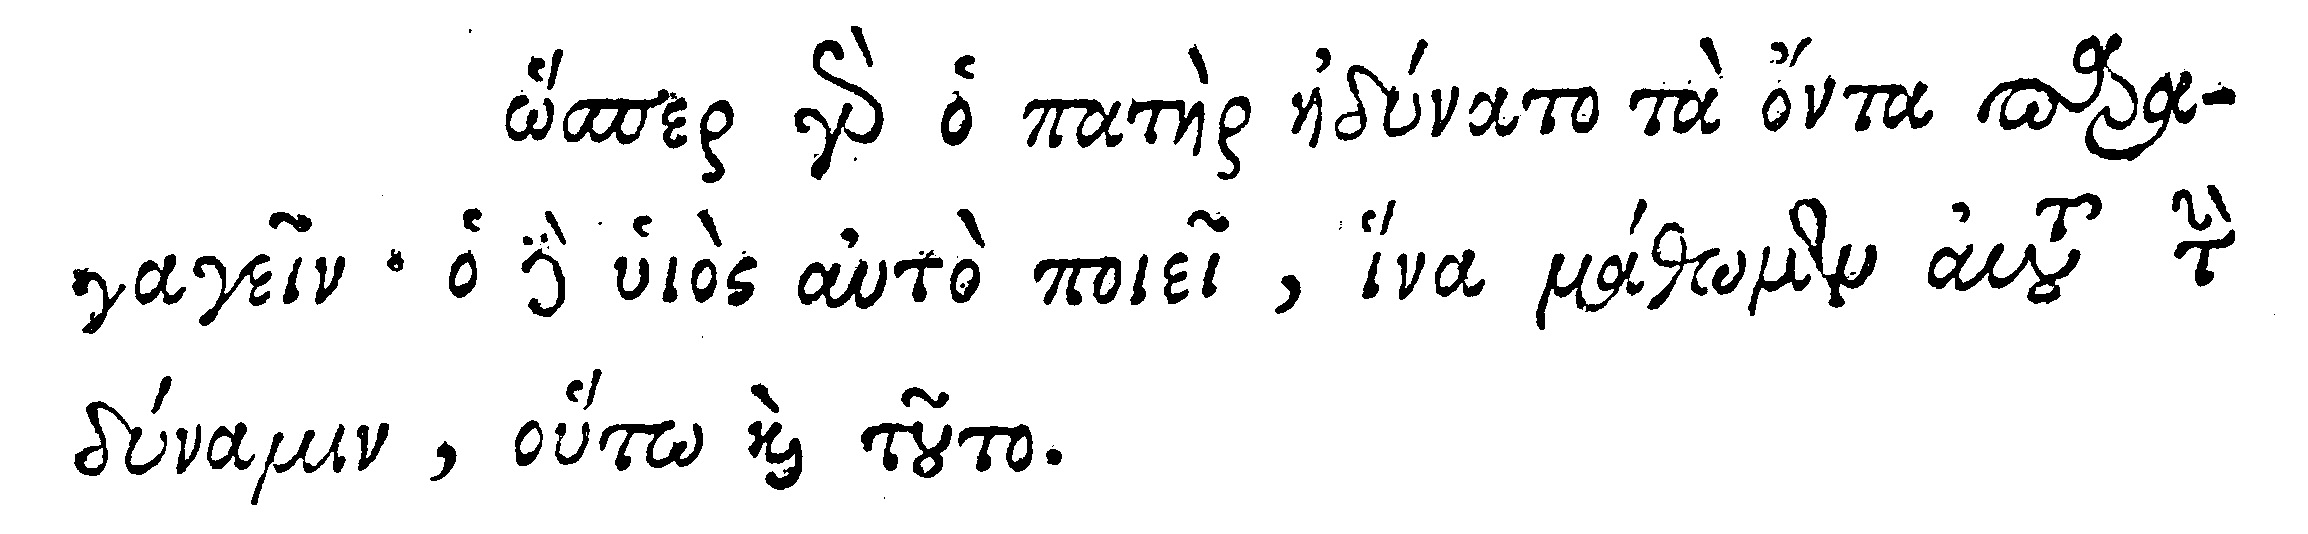 ὥσπερ γὰρ ὁ πατὴρ ἠδύνατο τὰ ὄντα παρα-
γαγεῖν· ὁ δὲ ὑιὸς αὐτὸ ποιεῖ, ἵνα μάθωμεν αὐτοῦ τὴν
δύναμιν, οὕτω καὶ τοῦτο.